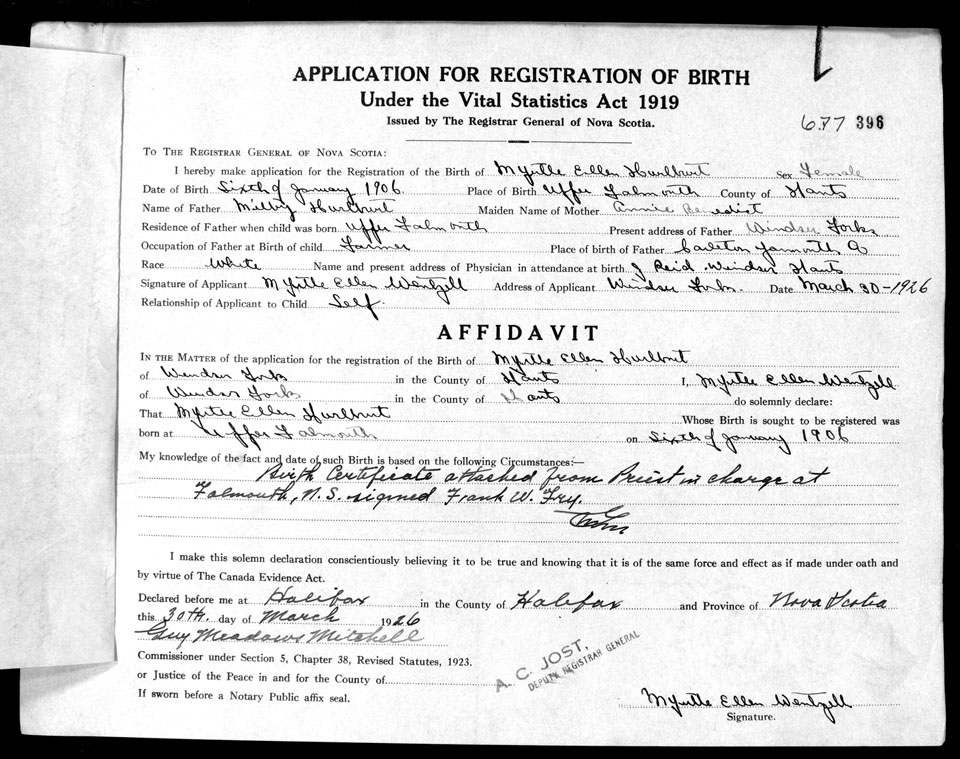 APPLICATION FOR REGISTRATION OF BIRTH
Under the Vital Statistics Act 1919
Issued by The Registrar General of Nova Scotia.
677 396
TO THE REGISTRAR GENERAL OF NOVA SCOTIA:
I hereby make application for the Registration of the Birth of Myrtle Ellen Hurlburt Sex Female
Date of Birth Sixth of January 1906. Place of Birth Upper Falmouth County of Hants
Name of Father Hurlburt Maiden Name of Mother Annie Benedict
Residence of Father when child was born Upper Falmouth Present address of Father Windsor Forks
Occupation of Father at Birth of child Farmer Place of birth of Father Carleton Yarmouth Co
Race White Name and present address of Physician in attendance at birth J Reid, Windsor Hants
Signature of Applicant Myrtle Ellen Wentzell Address of Applicant Windsor Forks. Date March 30-1926
Relationship of Applicant to Child Self.
AFFIDAVIT
IN THE MATTER of the application for the registration of the Birth of Myrtle Ellen Hurlburt
of Windsor Forks in the County of Hants I, Myrtle Ellen Wentzell
of Windsor Forks in the County of Hants do solemnly declare:
That Myrtle Ellen Hurlburt Whose Birth is sought to be registered was
born at Upper Falmouth on Sixth of January 1906
My knowledge of the fact and date of such Birth is based on the following Circumstances:—
Birth Certificate attached from Priest in charge at
Falmouth, N.S. signed Frank W. Fry.
I make this solemn declaration conscientiously believing it to be true and knowing that it is of the same force and effect as if made under oath and
by virtue of The Canada Evidence Act.
Declared before me at Halifax in the County of Halifax and Province of Nova Scotia
this 30th. day of March 1926
Guy Meadows Mitchell
Commissioner under Section 5, Chapter 38, Revised Statutes, 1923.
or Justice of the Peace in and for the County of
If sworn before a Notary Public affix seal.
A. C. JOST,
DEPUTY REGISTRAR GENERAL
Myrtle Ellen Wentzell
Signature.